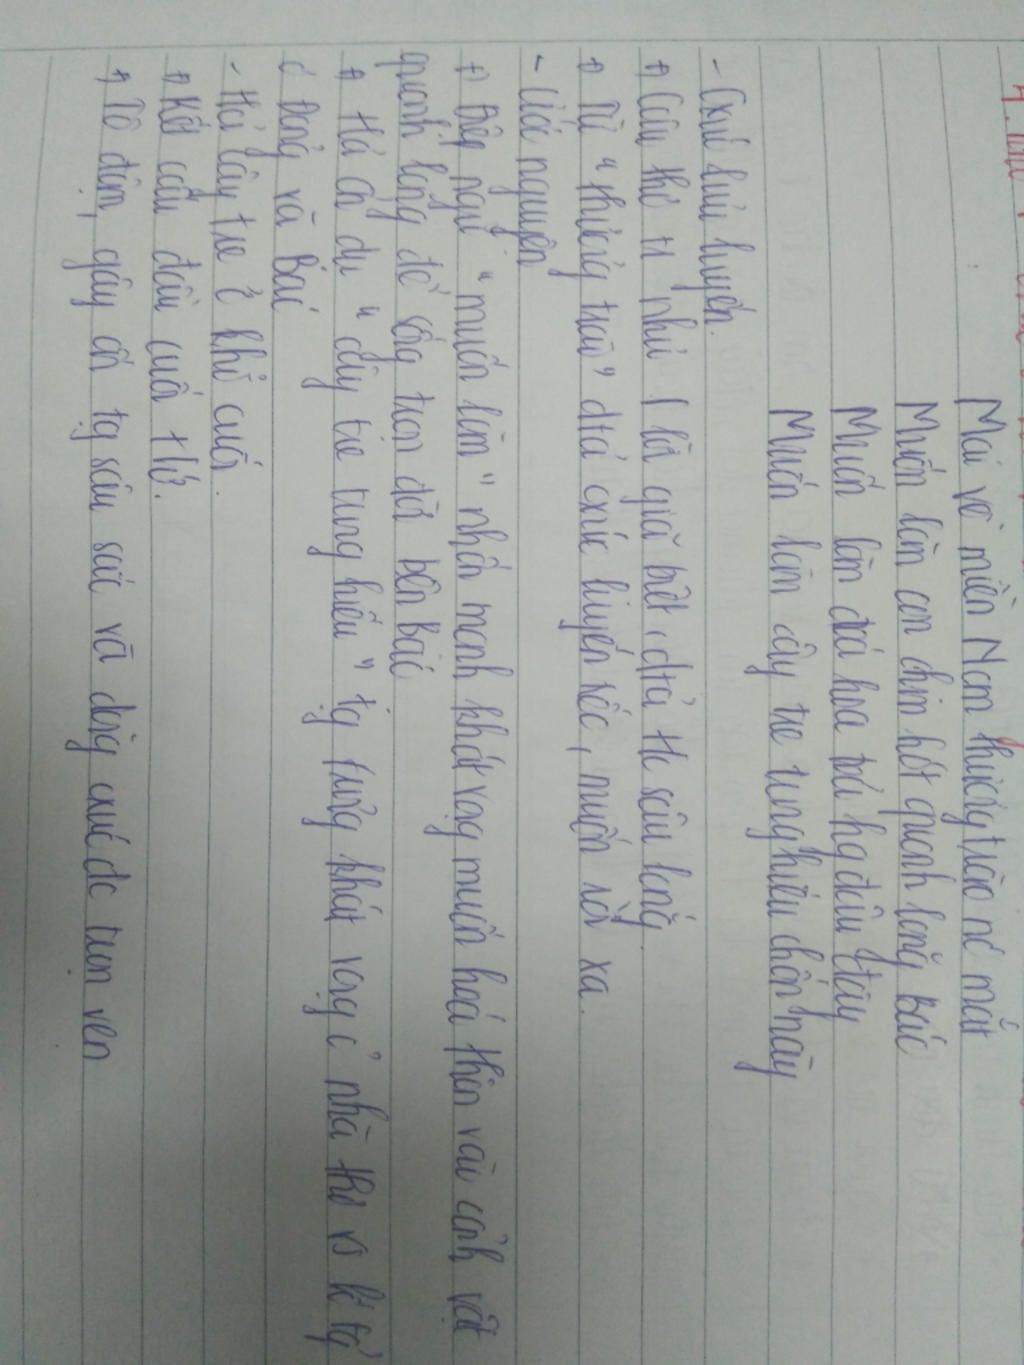 Mai về miền Nam thương trào nc mắt
Muốn làm con chim hót quanh lăng Bác
Muốn làm đoá hoa toả hg đâu đây
Muốn làm cây tre trung hiếu chốn này
- Cxúc lưu luyến.
+ Câu thơ như 1 lời giã biệt, dtả t/c sâu lắng
+ Từ "thương trào" dtả cxúc luyến tiếc, muốn rời xa.
- Ước nguyện
+ Điệp ngữ "muốn làm" nhấn mạnh khát vọng muốn hoá thân vào cảnh vật
quanh lăng để sống trọn đời bên Bác
+ H/a ẩn dụ "cây tre trung hiếu" tg trưng khát vọng củ nhà thơ vs lí tg
củ Đảng và Bác
- H/a cây tre ở khổ cuối.
+ Kết cấu đầu cuối t/ứ.
+ Tô đậm, gây ấn tg sâu sắc và dòng cxúc đc trọn vẹn